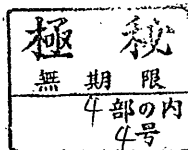 極秘
無期限
4部の内
4号